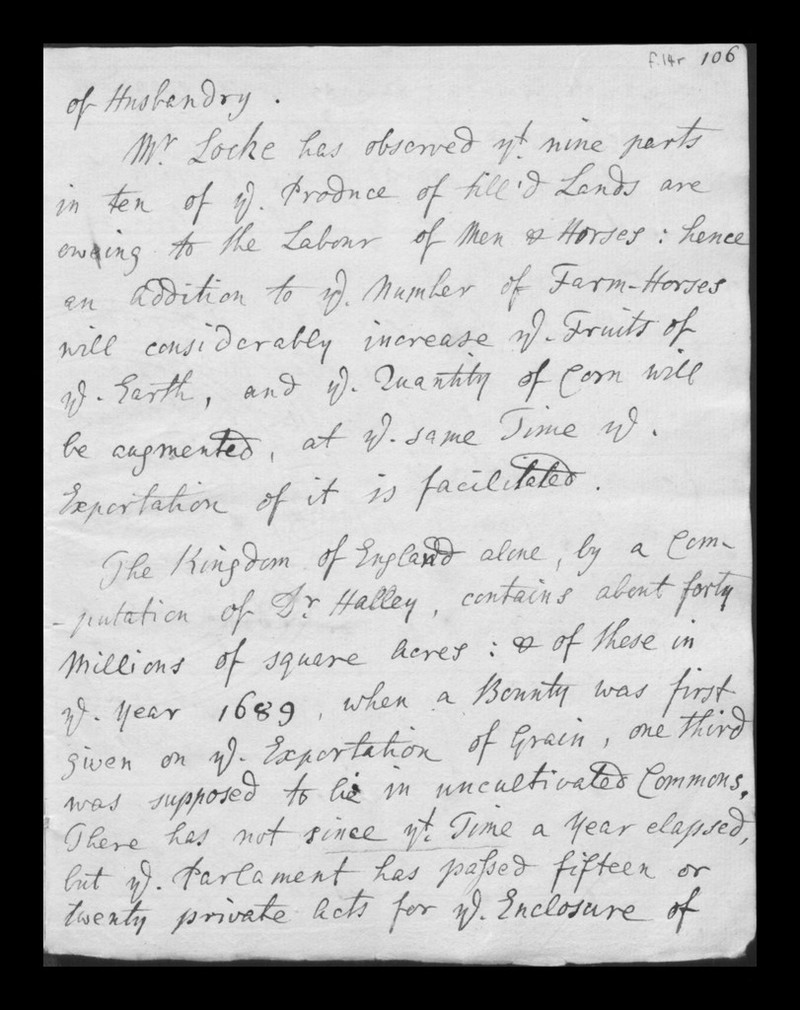 f.14r 106
of Husbandry .
Mr. Locke has observed yt. nine parts
in ten of ye. Produce of till'd Lands are
oweing to the Labour of Men & Horses : hence
an Addition to ye. Number of Farm-Horses
will considerably increase ye. Fruits of
ye. Earth, and ye. Quantity of Corn will
be augmented, at ye. same Time ye.
Exportation of it is facilitated .
The Kingdom of England alone, by a Com-
-putation of Dr. Halley, contains about forty
Millions of square Acres : & of these in
ye. Year 1689, when a Bounty was first
given on ye. Exportation of Grain, one third
was supposed to lie in uncultivated Commons.
There has not since yt. Time a Year elapsed,
but ye. Parlament has passed fifteen or
twenty private Acts for ye. Enclosure of